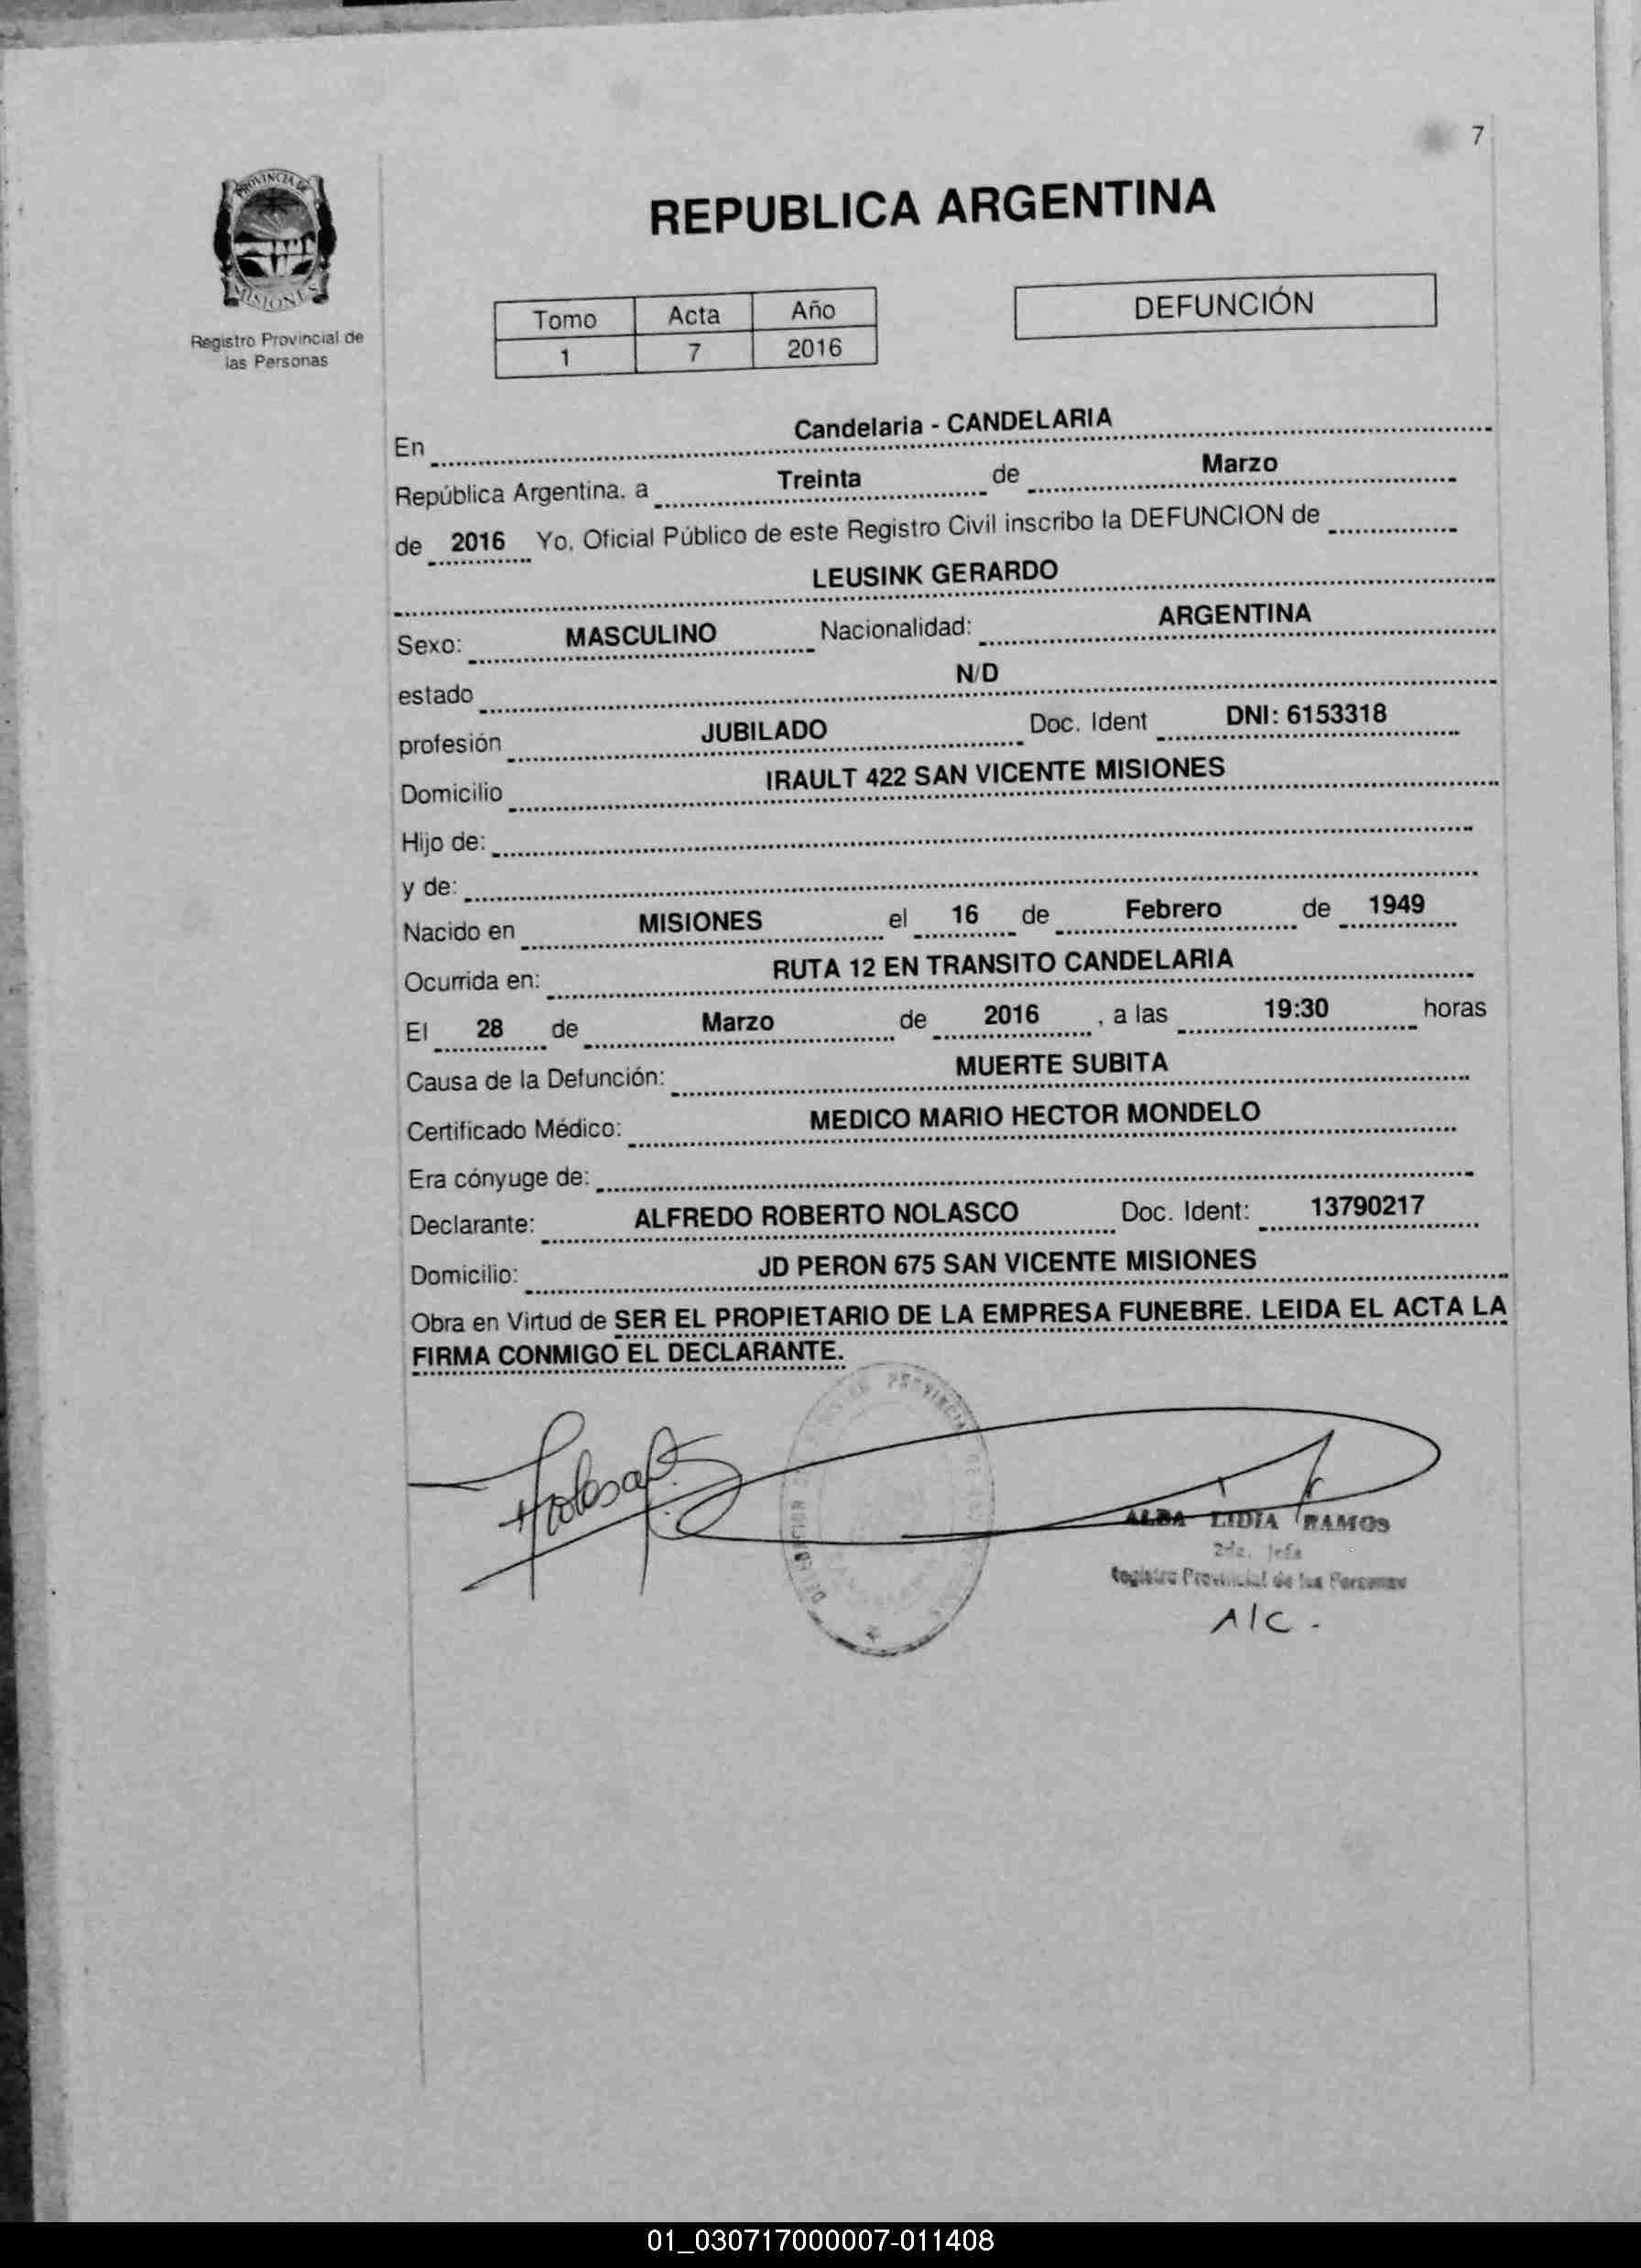 7
PROVINCIA DE
MISIONES
Registro Provincial de
las Personas
REPUBLICA ARGENTINA
Tomo Acta Año
1 7 2016
DEFUNCIÓN
En Candelaria - CANDELARIA
República Argentina, a Treinta de Marzo
de 2016 Yo, Oficial Público de este Registro Civil inscribo la DEFUNCION de
LEUSINK GERARDO
Sexo: MASCULINO Nacionalidad: ARGENTINA
estado N/D
profesión JUBILADO Doc. Ident DNI: 6153318
Domicilio IRAULT 422 SAN VICENTE MISIONES
Hijo de:
y de:
Nacido en MISIONES el 16 de Febrero de 1949
Ocurrida en: RUTA 12 EN TRANSITO CANDELARIA
El 28 de Marzo de 2016 , a las 19:30 horas
Causa de la Defunción: MUERTE SUBITA
Certificado Médico: MEDICO MARIO HECTOR MONDELO
Era cónyuge de:
Declarante: ALFREDO ROBERTO NOLASCO Doc. Ident: 13790217
Domicilio: JD PERON 675 SAN VICENTE MISIONES
Obra en Virtud de SER EL PROPIETARIO DE LA EMPRESA FUNEBRE. LEIDA EL ACTA LA
FIRMA CONMIGO EL DECLARANTE.
ALBA LIDIA RAMOS
2da. Jefa
Registro Provincial de las Personas
A/C.
01_030717000007-011408